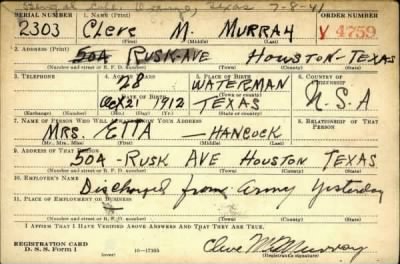 Orange, Texas 7-8-41
SERIAL NUMBER 1. NAME (Print) ORDER NUMBER
2303 Cleve M. MURRAY V 4759
(First) (Middle) (Last)
2. ADDRESS (Print)
504 RUSK-AVE HOUSTON-TEXAS
(Number and street or R. F. D. number) (Town) (County) (State)
3. TELEPHONE 4. AGE IN YEARS 5. PLACE OF BIRTH 6. COUNTRY OF CITIZENSHIP
28 WATERMAN
DATE OF BIRTH (Town or county)
Oct 21 1912 TEXAS U.S.A
(Exchange) (Number) (Mo.) (Day) (Yr.) (State or country)
7. NAME OF PERSON WHO WILL ALWAYS KNOW YOUR ADDRESS 8. RELATIONSHIP OF THAT PERSON
MRS. ETTA — HANCOCK
(Mr., Mrs., Miss) (First) (Middle) (Last)
9. ADDRESS OF THAT PERSON
504 - RUSK AVE HOUSTON TEXAS
(Number and street or R. F. D. number) (Town) (County) (State)
10. EMPLOYER'S NAME
Discharged from Army Yesterday
11. PLACE OF EMPLOYMENT OR BUSINESS
(Number and street or R. F. D. number) (Town) (County) (State)
I AFFIRM THAT I HAVE VERIFIED ABOVE ANSWERS AND THAT THEY ARE TRUE.
REGISTRATION CARD
D. S. S. Form 1 (over) 16—17105 Cleve M Murray
(Registrant's signature)